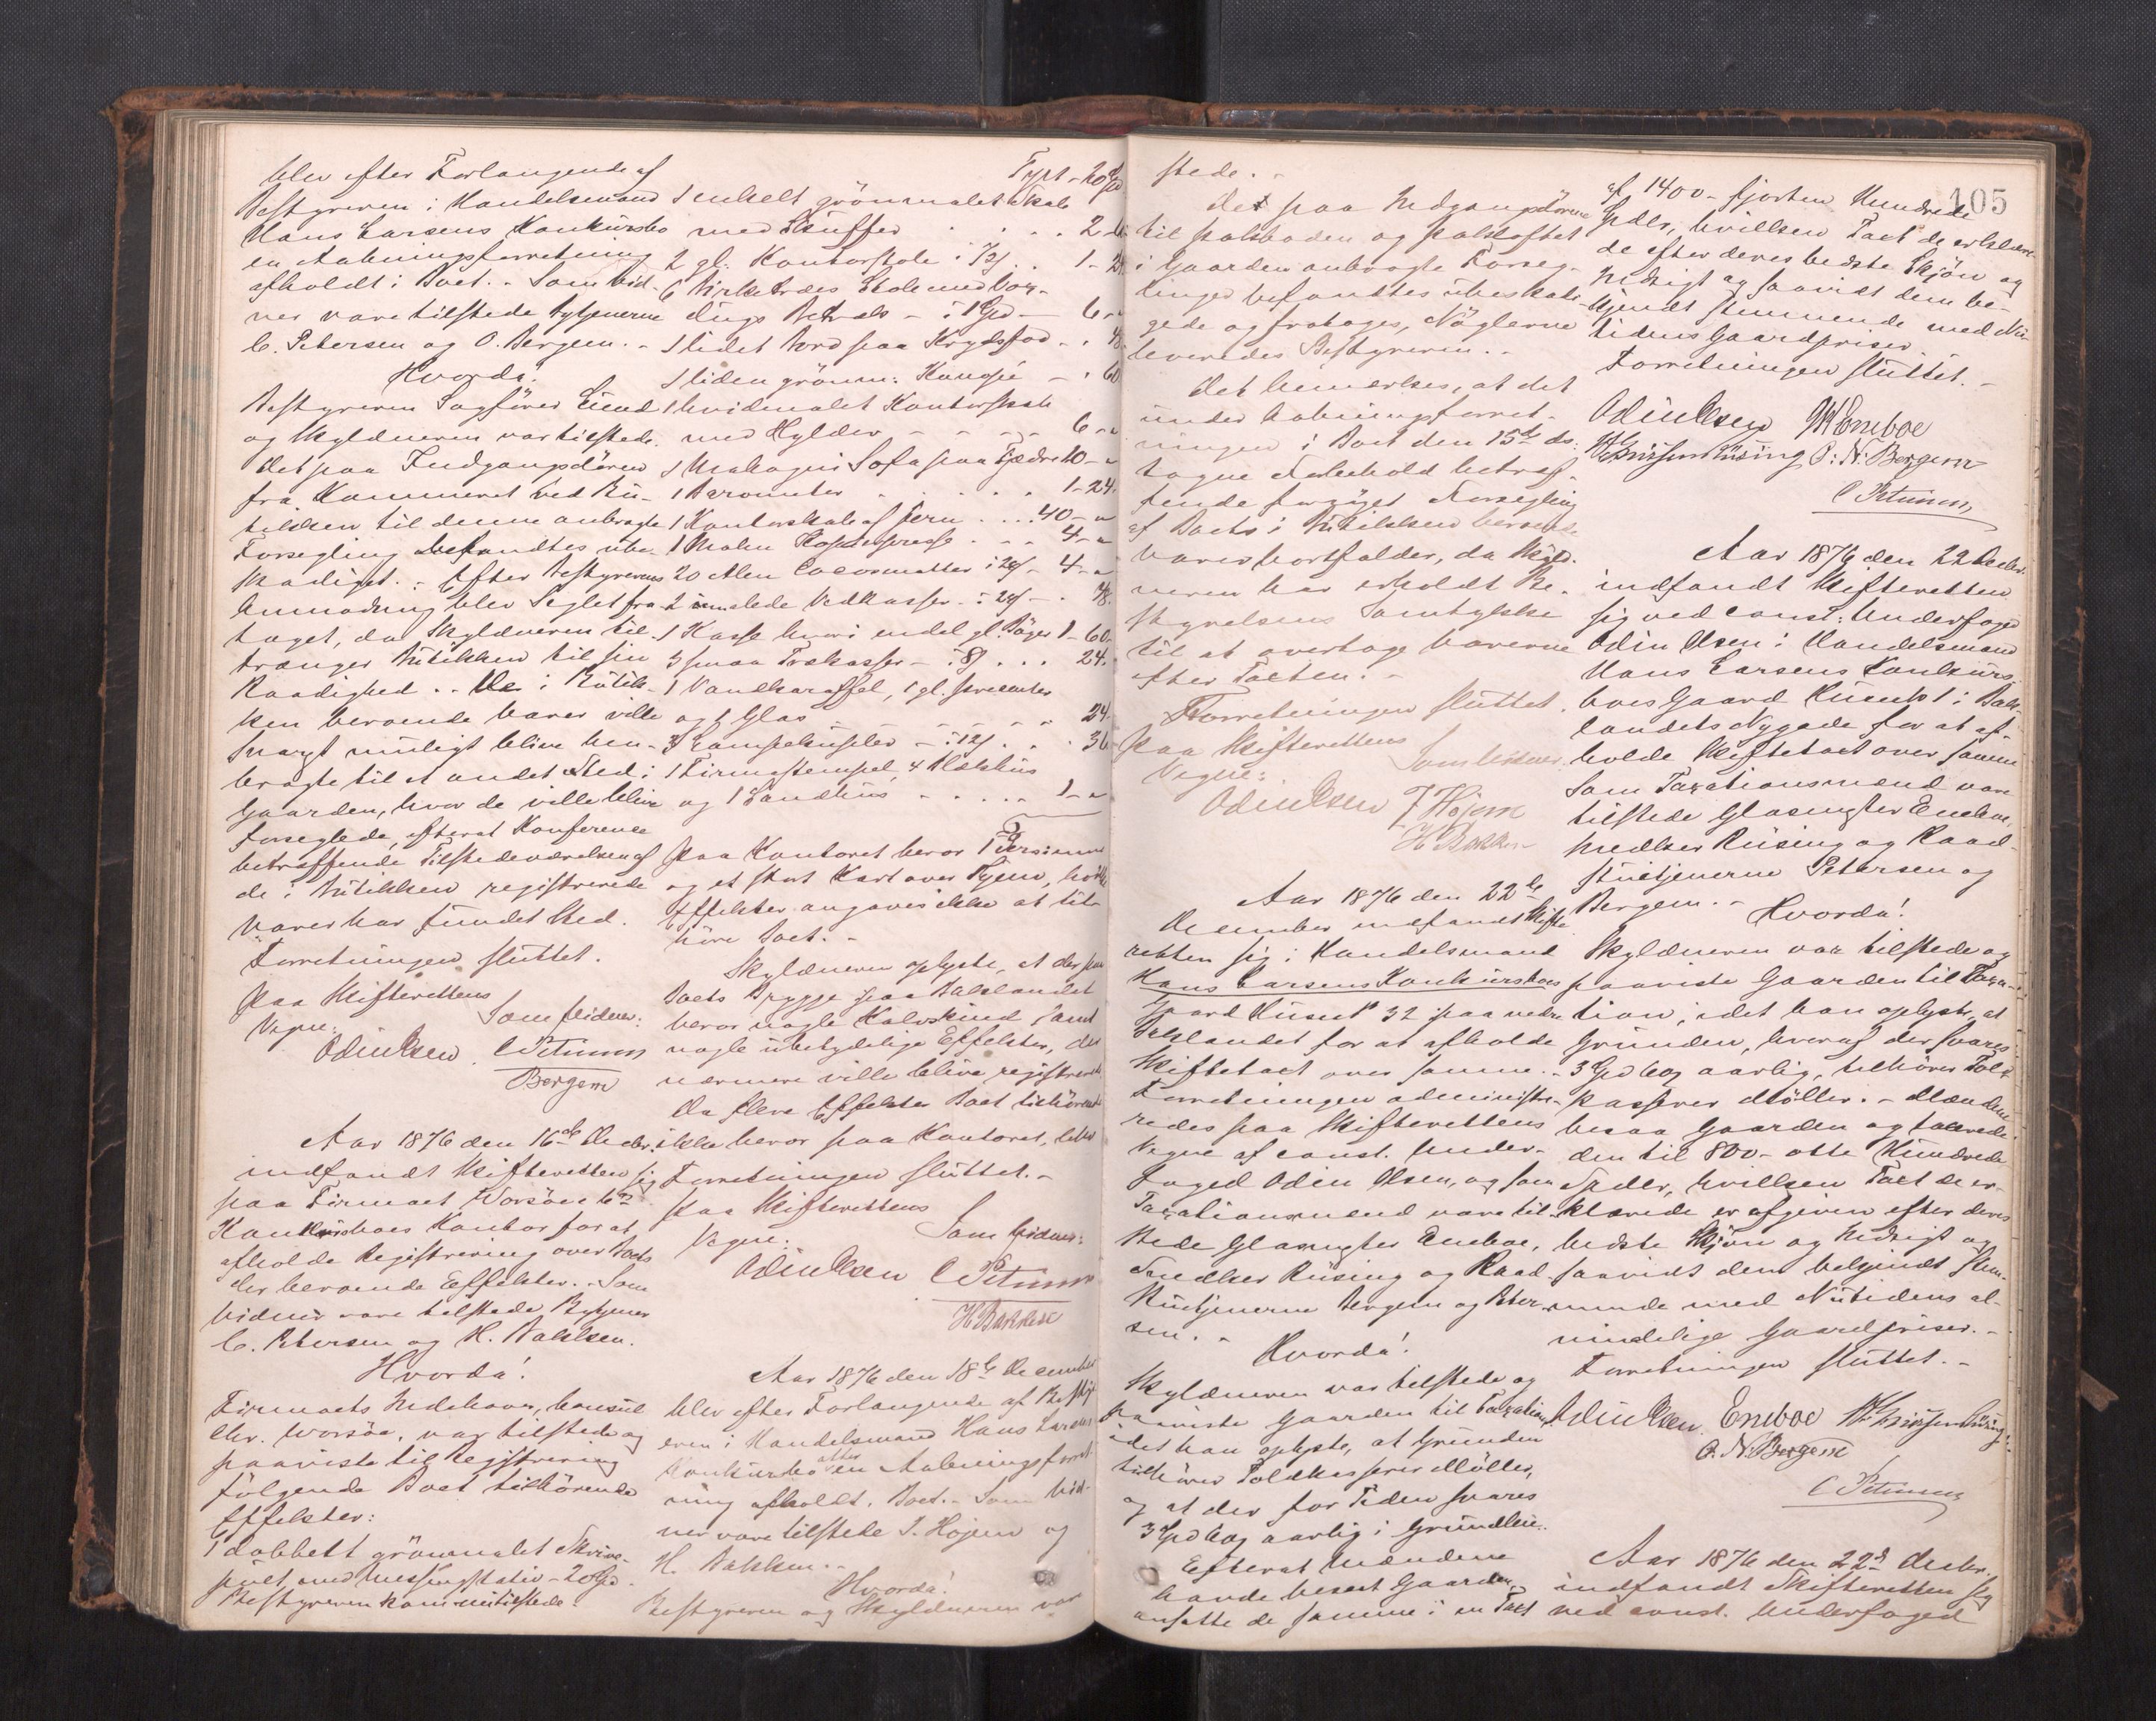 blev efter Forlangende af
Bestyreren i Handelsmand
Hans Larsens Konkursbo
en Aabningsforretning
afholdt i Boet. - Som Vid-
ner vare tilstede Bytjenerne
C. Petersen og O. Bergem. -
Hvorda!
Bestyreren Sagfører Lund
og Skyldneren var tilstede.
Det paa Indgangsdøren
fra Kammeret ved Bu-
tikken til denne anbragte
Forsegling befandtes ube-
skadiget. - Efter Bestyrerens
Anmodning blev Seglet fra-
taget, da Skyldneren til-
trænger Butikken til sin
Raadighed. - De i Butik-
ken beroende Varer ville
snarest muligt blive hen-
bragte til et andet Sted i
Gaarden, hvor de ville blive
forseglede, efterat Konference
betræffende Tilstedeværelsen af
de i Butikken registrerede
Varer har fundet Sted.
Forretningen sluttet.
Paa Skifterettens
Vegne:
Som Vidner:
Odin Olsen C Petersen
Bergem
Aar 1876 den 16de Decbr.
indfandt Skifteretten sig
paa Firmaet Worsøe & Co
Konkursboes Kontor for at
afholde Registrering over Boets
der beroende Effekter. - Som
Vidner vare tilstede Bytjener
C. Petersen og H. Bakken.
Hvorda!
Firmaets Indehaver, Consul
Chr. Worsøe, var tilstede og
paaviste til Registrering
følgende Boet tilhørende
Effekter:
1 dobbelt grønmalet Skrive-
pult med Messingstativ - 20 Spd.
Bestyreren kom nu tilstede.
Tpt - 20 Spd
1 enkelt grønmalet Skab
med Skuffer . . . . 2 -
2 gl. Kontorstole : . . 1 - 24
6 Birketræes Stole med Vox-
dugs Betræk - : 1 Spd - 6 - "
1 lidet Bord paa Krydsfod - . 48.
1 liden grønm: Kanapé - . 60
1 hvidmalet Kontorskab
med Hylder - - - - 6 - "
1 Mahogni Sofa paa Fjedre 10 - "
1 Barometer . . . . 1 - 24.
1 Kontorskab af Jern . . . 40 - "
1 Kopiepresse . - - 4 - "
20 Alen Cocosmatter : 24 - 4 - "
2 umalede Vedkasser - : 24 - . 48.
1 Kasse hvori endel gl. Bøger 1 - 60.
3 smaa Trækasser - : 8 . . . 24.
1 Vandkaraffel, 1 gl.
og 1 Glas - - - - - - 24.
3 Lampekupler - : 12 . . . 36
1 Firmastempel, 4 Blækhus
og 1 Sandhus - . . . 1 - "
Paa Kontoret beror
og et stort Kart over Byen, hvilke
Effekter angaves ikke at til-
høre Boet. -
Skyldneren oplyste, at der paa
Boets Brygge paa Baklandet
beror nogle Kalveskind samt
nogle ubetydelige Effekter, der
nærmere ville blive registrerede
Da flere Effekter Boet tilhørende
ikke beror paa Kontoret, blev
Forretningen sluttet. -
Paa Skifterettens
Vegne:
Som Vidner:
Odin Olsen C Petersen
H Bakken
Aar 1876 den 18de December
blev efter Forlangende af Besty-
eren i Handelsmand Hans Larsens
Konkursbo atter en Aabningsforret-
ning afholdt i Boet. - Som Vid-
ner vare tilstede J. Højem og
H. Bakken. -
Hvorda!
Bestyreren og Skyldneren var
stede. -
Det paa Indgangsdørene
til Saltboden og Saltloftet
i Gaarden anbragte Forseg-
linger befandtes ubeskadi-
gede og fratoges, Nøglerne
leveredes Bestyreren. -
Det bemærkes, at det
under Aabningsforret-
ningen i Boet den 15de ds.
tagne Forbehold betræf-
fende Forsegling
af Boets i Butikken beroende
Varer bortfalder, da Skyld-
neren har erholdt Be-
styrelsens Samtykke
til at overtage Varerne
efter Taxten. -
Forretningen sluttet.
Paa Skifterettens
Vegne:
Som Vidner
Odin Olsen J Højem
H Bakken
Aar 1876 den 22de
December indfandt Skifte
retten sig i Handelsmand
Hans Larsens Konkursboes
Gaard Husnr 32 paa nedre
Baklandet for at afholde
Skiftetaxt over samme. -
Forretningen administre-
redes paa Skifterettens
Vegne af const. Under-
foged Odin Olsen, og som
Taxationsmænd vare til-
stede Glasmester Eneboe,
Snedker Rüsing og Raad-
stutjenerne Bergem og Peter-
sen. -
Hvorda!
Skyldneren var tilstede og
paaviste Gaarden til Taxation
idet han oplyste, at Grunden
tilhører Toldkasserer Møller,
og at der for Tiden svares
3 Spd 60 aarlig i Grundleie.
Efterat Mændene
havde beseet Gaarden,
ansatte de samme i en Taxt
105
af 1400 - fjorten Hundrede
Spdlr, hvilken Taxt de erklære-
de efter deres bedste Skjøn og
Indsigt og saavidt dem be-
kjendt stemmende med Nu-
tidens Gaardpriser.
Forretningen sluttet. -
Odin Olsen Eneboe
Rüsing O: N: Bergem
C Petersen
Aar 1876 den 22 Decbr.
indfandt Skifteretten
sig ved const: Underfoged
Odin Olsen i Handelsmand
Hans Larsens Konkurs
boes Gaard Husnr 1 i Bak-
landets Nygade for at af-
holde Skiftetaxt over samme
Som Taxationsmænd vare
tilstede Glasmester Eneboe,
Snedker Rüsing og Raad-
stutjenerne Petersen og
Bergem. -
Hvorda!
Skyldneren var tilstede og
paaviste Gaarden til Taxa-
tion, idet han oplyste, at
Grunden, hvoraf der svares
3 Spd 60 aarlig, tilhører Told-
kasserer Møller. - Mændene
besaa Gaarden og taxerede
den til 800 - otte Hundrede
Spdlr, hvilken Taxt de er-
klærede er afgiven efter deres
bedste Skjøn og Indsigt og
saavidt dem bekjendt stem-
mende med Nutidens al-
mindelige Gaardpriser. -
Forretningen sluttet. -
Odin Olsen. Eneboe Rüsing
O. N. Bergem
C Petersen
Aar 1876 den 22d Decbr.
indfandt Skifteretten sig
ved const. Underfoged